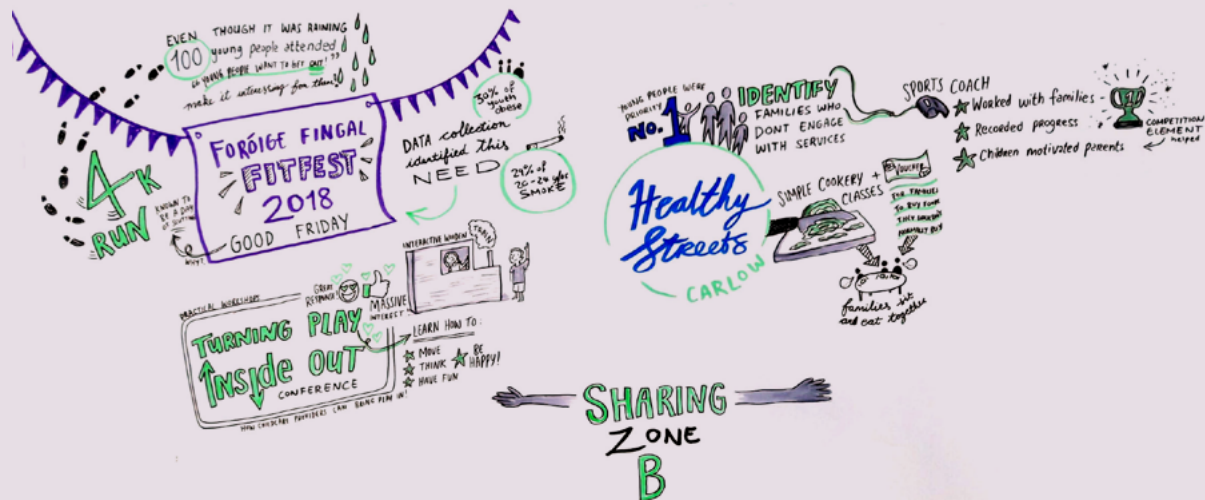 EVEN THOUGH IT WAS RAINING
100 young people attended
"YOUNG PEOPLE WANT TO GET OUT!"
make it interesting for them!
FORÓIGE FINGAL
FITFEST
2018
GOOD FRIDAY
4K
RUN
KNOWN TO
BE A DAY
WHY?
DATA collection
identified this
NEED
30% of
youth
obese
24% of
20-24 yrs
SMOKE
INTERACTIVE WINDOW
TRAIN
PRACTICAL WORKSHOPS
GREAT
RESPONSE!
MASSIVE
INTEREST!
TURNING PLAY
INSIDE OUT
CONFERENCE
HOW CHILDCARE PROVIDERS CAN BRING PLAY IN!
LEARN HOW TO:
MOVE
THINK
HAVE FUN
BE
HAPPY!
YOUNG PEOPLE WERE
PRIORITY
NO. 1
IDENTIFY
FAMILIES WHO
DONT ENGAGE
WITH SERVICES
SPORTS COACH
Worked with families
Recorded progress
Children motivated parents
COMPETITION
ELEMENT
helped
Healthy
Streets
CARLOW
SIMPLE COOKERY +
CLASSES
VOUCHER
FOR FAMILIES
TO BUY FOOD
THEY WOULDN'T
NORMALLY BUY
families sit
and eat together
SHARING
ZONE
B